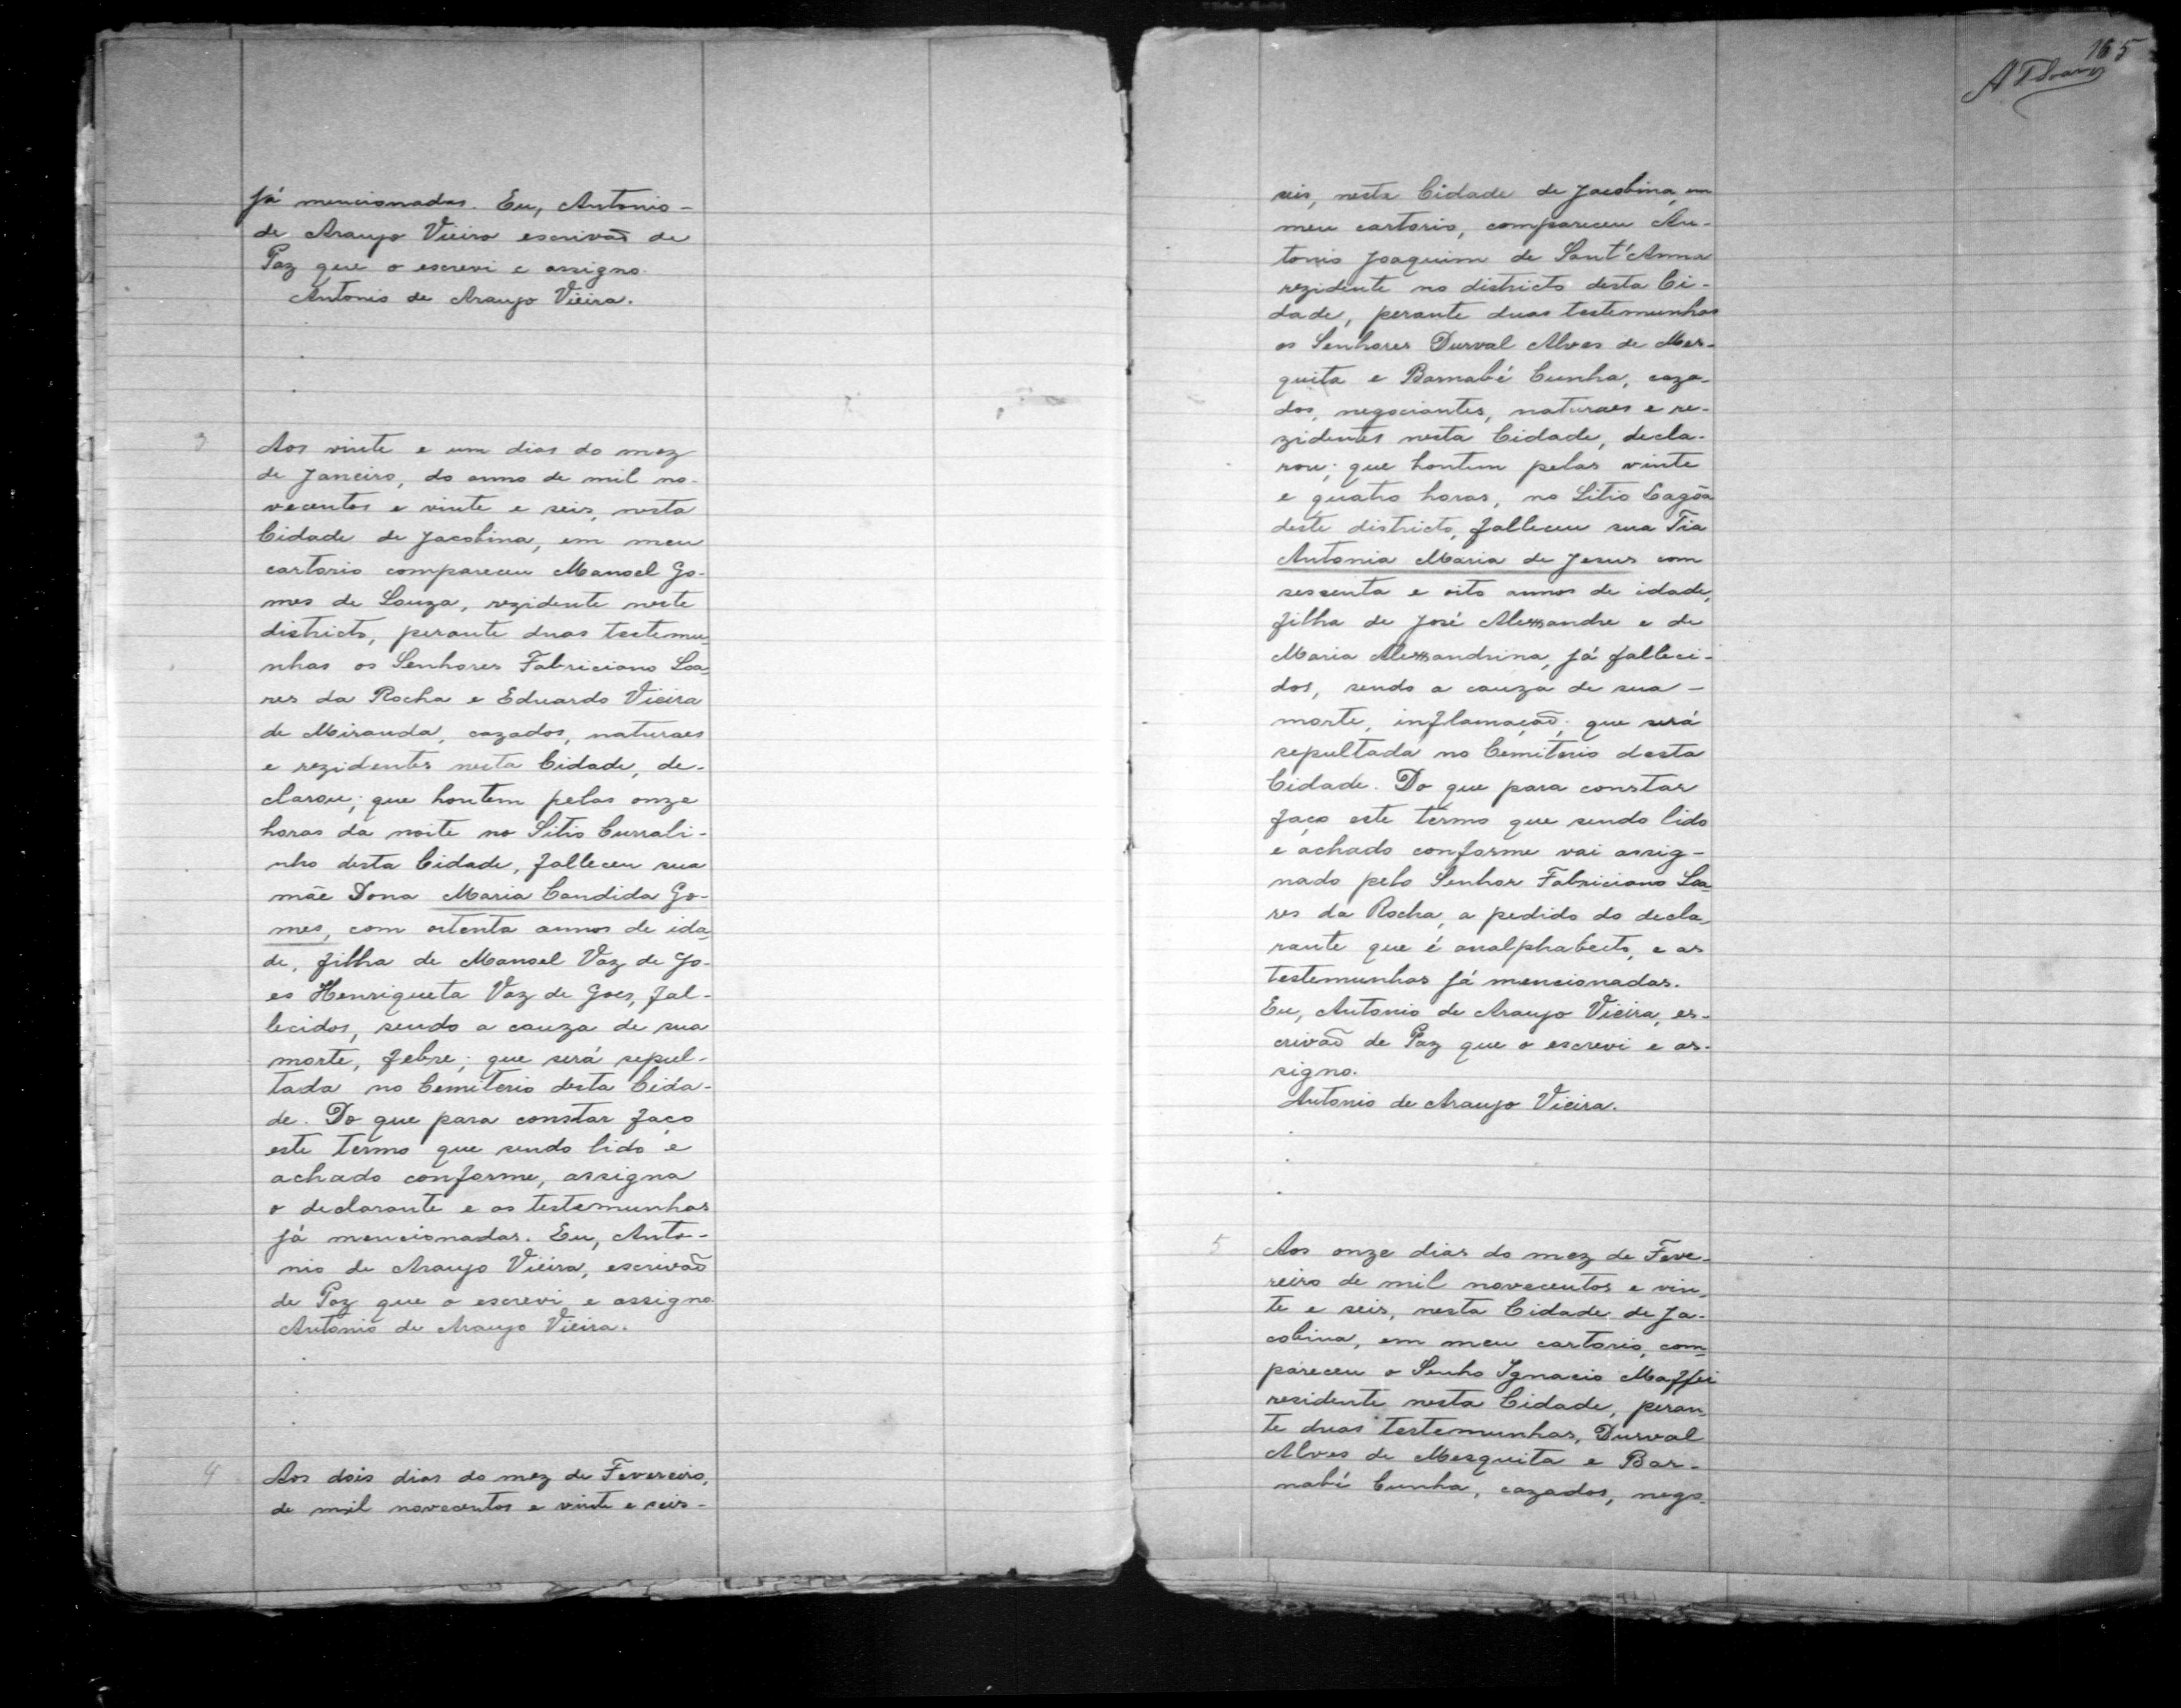 já mencionadas. Eu, Antonio -
de Araujo Vieira escrivaõ de
Paz que o escrevi e assigno.
Antonio de Araujo Vieira.
3
Aos vinte e um dias do mez
de Janeiro, do anno de mil no-
vecentos e vinte e seis, nesta
Cidade de Jacobina, em meu
cartorio compareceu Manoel Go-
mes de Souza, rezidente neste
districto, perante duas testemu-
nhas os Senhores Fabriciano Soa-
res da Rocha e Eduardo Vieira
de Miranda, cazados, naturaes
e rezidentes nesta Cidade, de-
clarou; que hontem pelas onze
horas da noite no Sitio Currali-
nho desta Cidade, falleceu sua
mãe Dona Maria Candida Go-
mes, com oitenta annos de ida-
de, filha de Manoel Vaz de Go-
es Henriqueta Vaz de Goes, fal-
lecidos, sendo a cauza de sua
morte, febre; que será sepul-
tada no Cemiterio desta Cida-
de. Do que para constar faço
este termo que sendo lido e
achado conforme, assigna
o declarante e as testemunhas
já mencionadas. Eu, Anto-
nio de Araujo Vieira, escrivaõ
de Paz que o escrevi e assigno.
Antonio de Araujo Vieira.
4
Aos dois dias do mez de Fevereiro,
de mil novecentos e vinte e seis -
165
seis, nesta Cidade de Jacobina, em
meu cartorio, compareceu An-
tonio Joaquim de Sant'Anna
rezidente no districto desta Ci-
dade, perante duas testemunhas
os Senhores Durval Alves de Mes-
quita e Barnabé Cunha, caza-
dos, negociantes, naturaes e re-
zidentes nesta Cidade, decla-
rou; que hontem pelas vinte
e quatro horas, no Sitio Lagôa
deste districto, falleceu sua Tia
Antonia Maria de Jesus com
sessenta e oito annos de idade,
filha de José Alexandre e de
Maria Alexandrina, já falleci-
dos, sendo a cauza de sua -
morte, inflamaçaõ; que será
sepultada no Cemiterio desta
Cidade. Do que para constar
faço este termo que sendo lido
e achado conforme vai assig-
nado pelo Senhor Fabriciano Soa-
res da Rocha, a pedido do decla-
rante que é analphabeto, e as
testemunhas já mencionadas.
Eu, Antonio de Araujo Vieira, es-
crivaõ de Paz que o escrevi e as-
signo.
Antonio de Araujo Vieira.
5
Aos onze dias do mez de Feve-
reiro de mil novecentos e vin-
te e seis, nesta Cidade de Ja-
cobina, em meu cartorio, com-
pareceu o Senho Ignacio Maffei
residente nesta Cidade, peran-
te duas testemunhas, Durval
Alves de Mesquita e Bar-
nabé Cunha, cazados, nego-